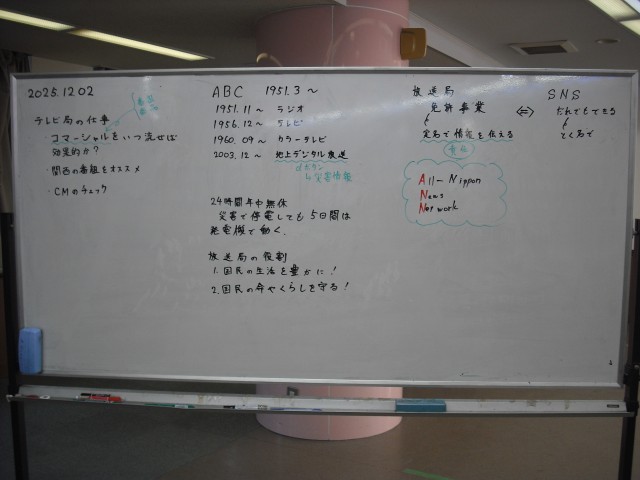 2025.12.02
テレビ局の仕事
・コマーシャルをいつ流せば
効果的か?
・関西の番組をオススメ
・CMのチェック
ABC 1951.3～
1951.11～ ラジオ
1956.12～ テレビ
1960.09～ カラーテレビ
2003.12～ 地上デジタル放送
dボタン
↳災害情報
24時間年中無休
災害で停電しても5日間は
発電機で働く。
放送局の役割
1.国民の生活を豊かに!
2.国民の命やくらしを守る!
放送局
免許事業
実名で情報を伝える
All-Nippon
News
Network
⇔
SNS
だれでもできる
とく名で